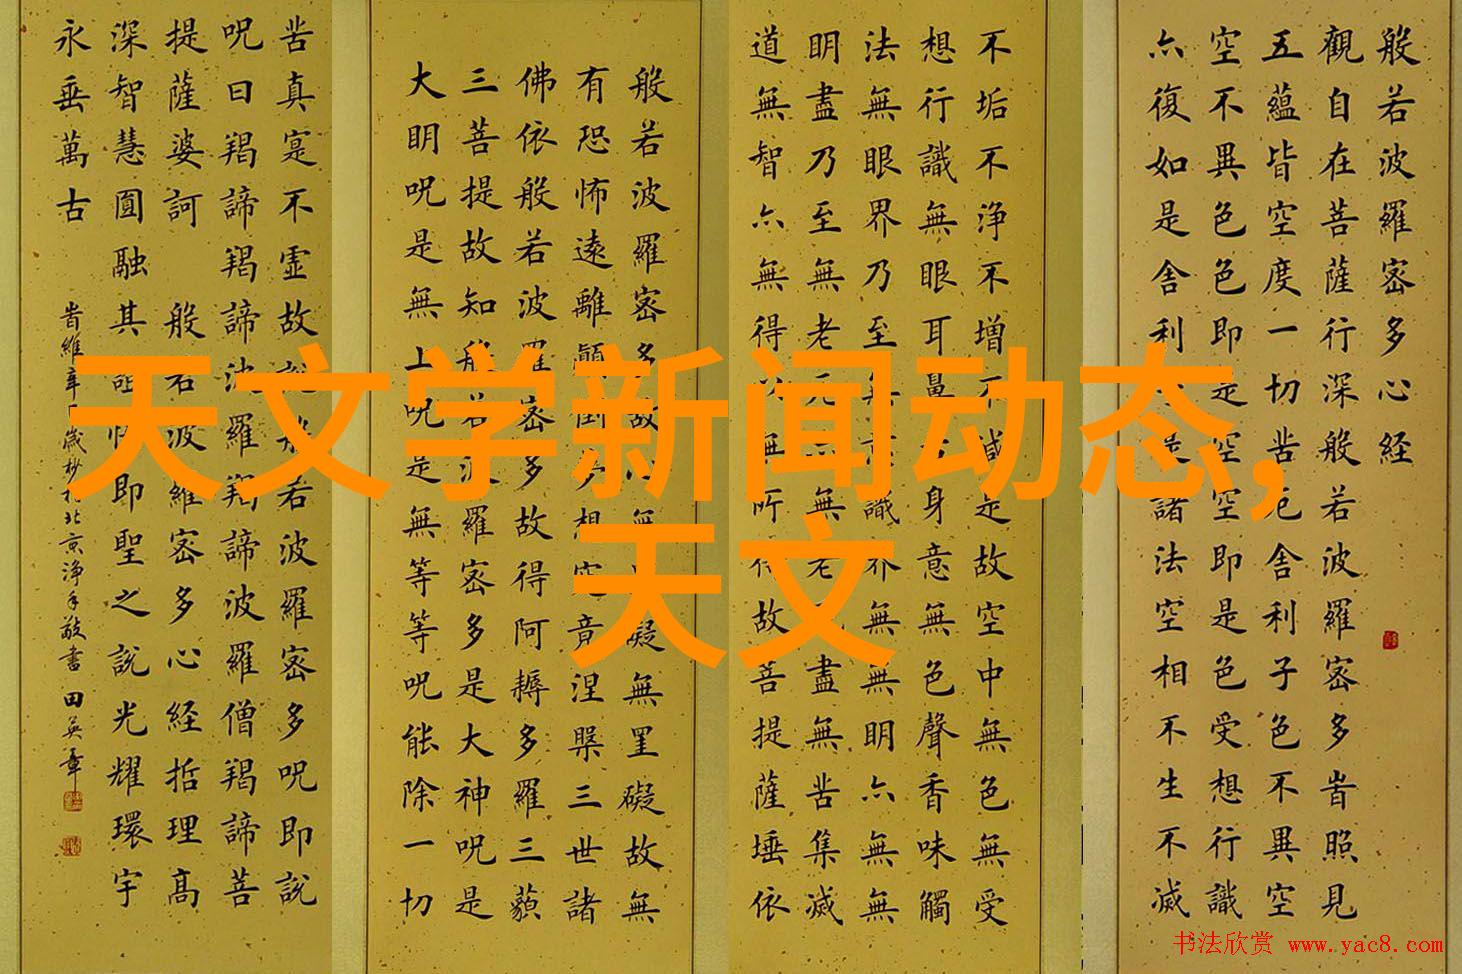 般若波羅密多心経
觀自在菩薩行深般若波羅密多旹照見
五蘊皆空度一切苦厄舍利子色不異空
空不異色色即是空空即是色受想行識
亦復如是舍利是諸法空相不生不滅
不垢不浄不增不減是故空中無色無受
想行識無眼耳鼻舌身意無色聲香味觸
法無眼界乃至無意識界無無明亦無無
明盡乃至無老死亦無老死盡無苦集滅
道無智亦無得以無所得故菩提薩埵依
般若波羅密多故心無罣礙無罣礙故無
有恐怖遠離顛倒夢想究竟涅槃三世諸
佛依般若波羅密多故得阿耨多羅三藐
三菩提故知般若波羅密多是大神呪是
大明呪是無上呪是無等等呪能除一切
苦真寔不虛故説般若波羅密多呪即説
呪曰羯諦羯諦波羅羯諦波羅僧羯諦菩
提薩婆訶 般若波羅密多心経括理高
深智慧圓融其詣快即聖之説光耀環宇
永垂萬古
旹維辛歲杪於北京浄手敬書 田英章
天文学新闻动态,
天文
书法欣赏 www.yac8.com